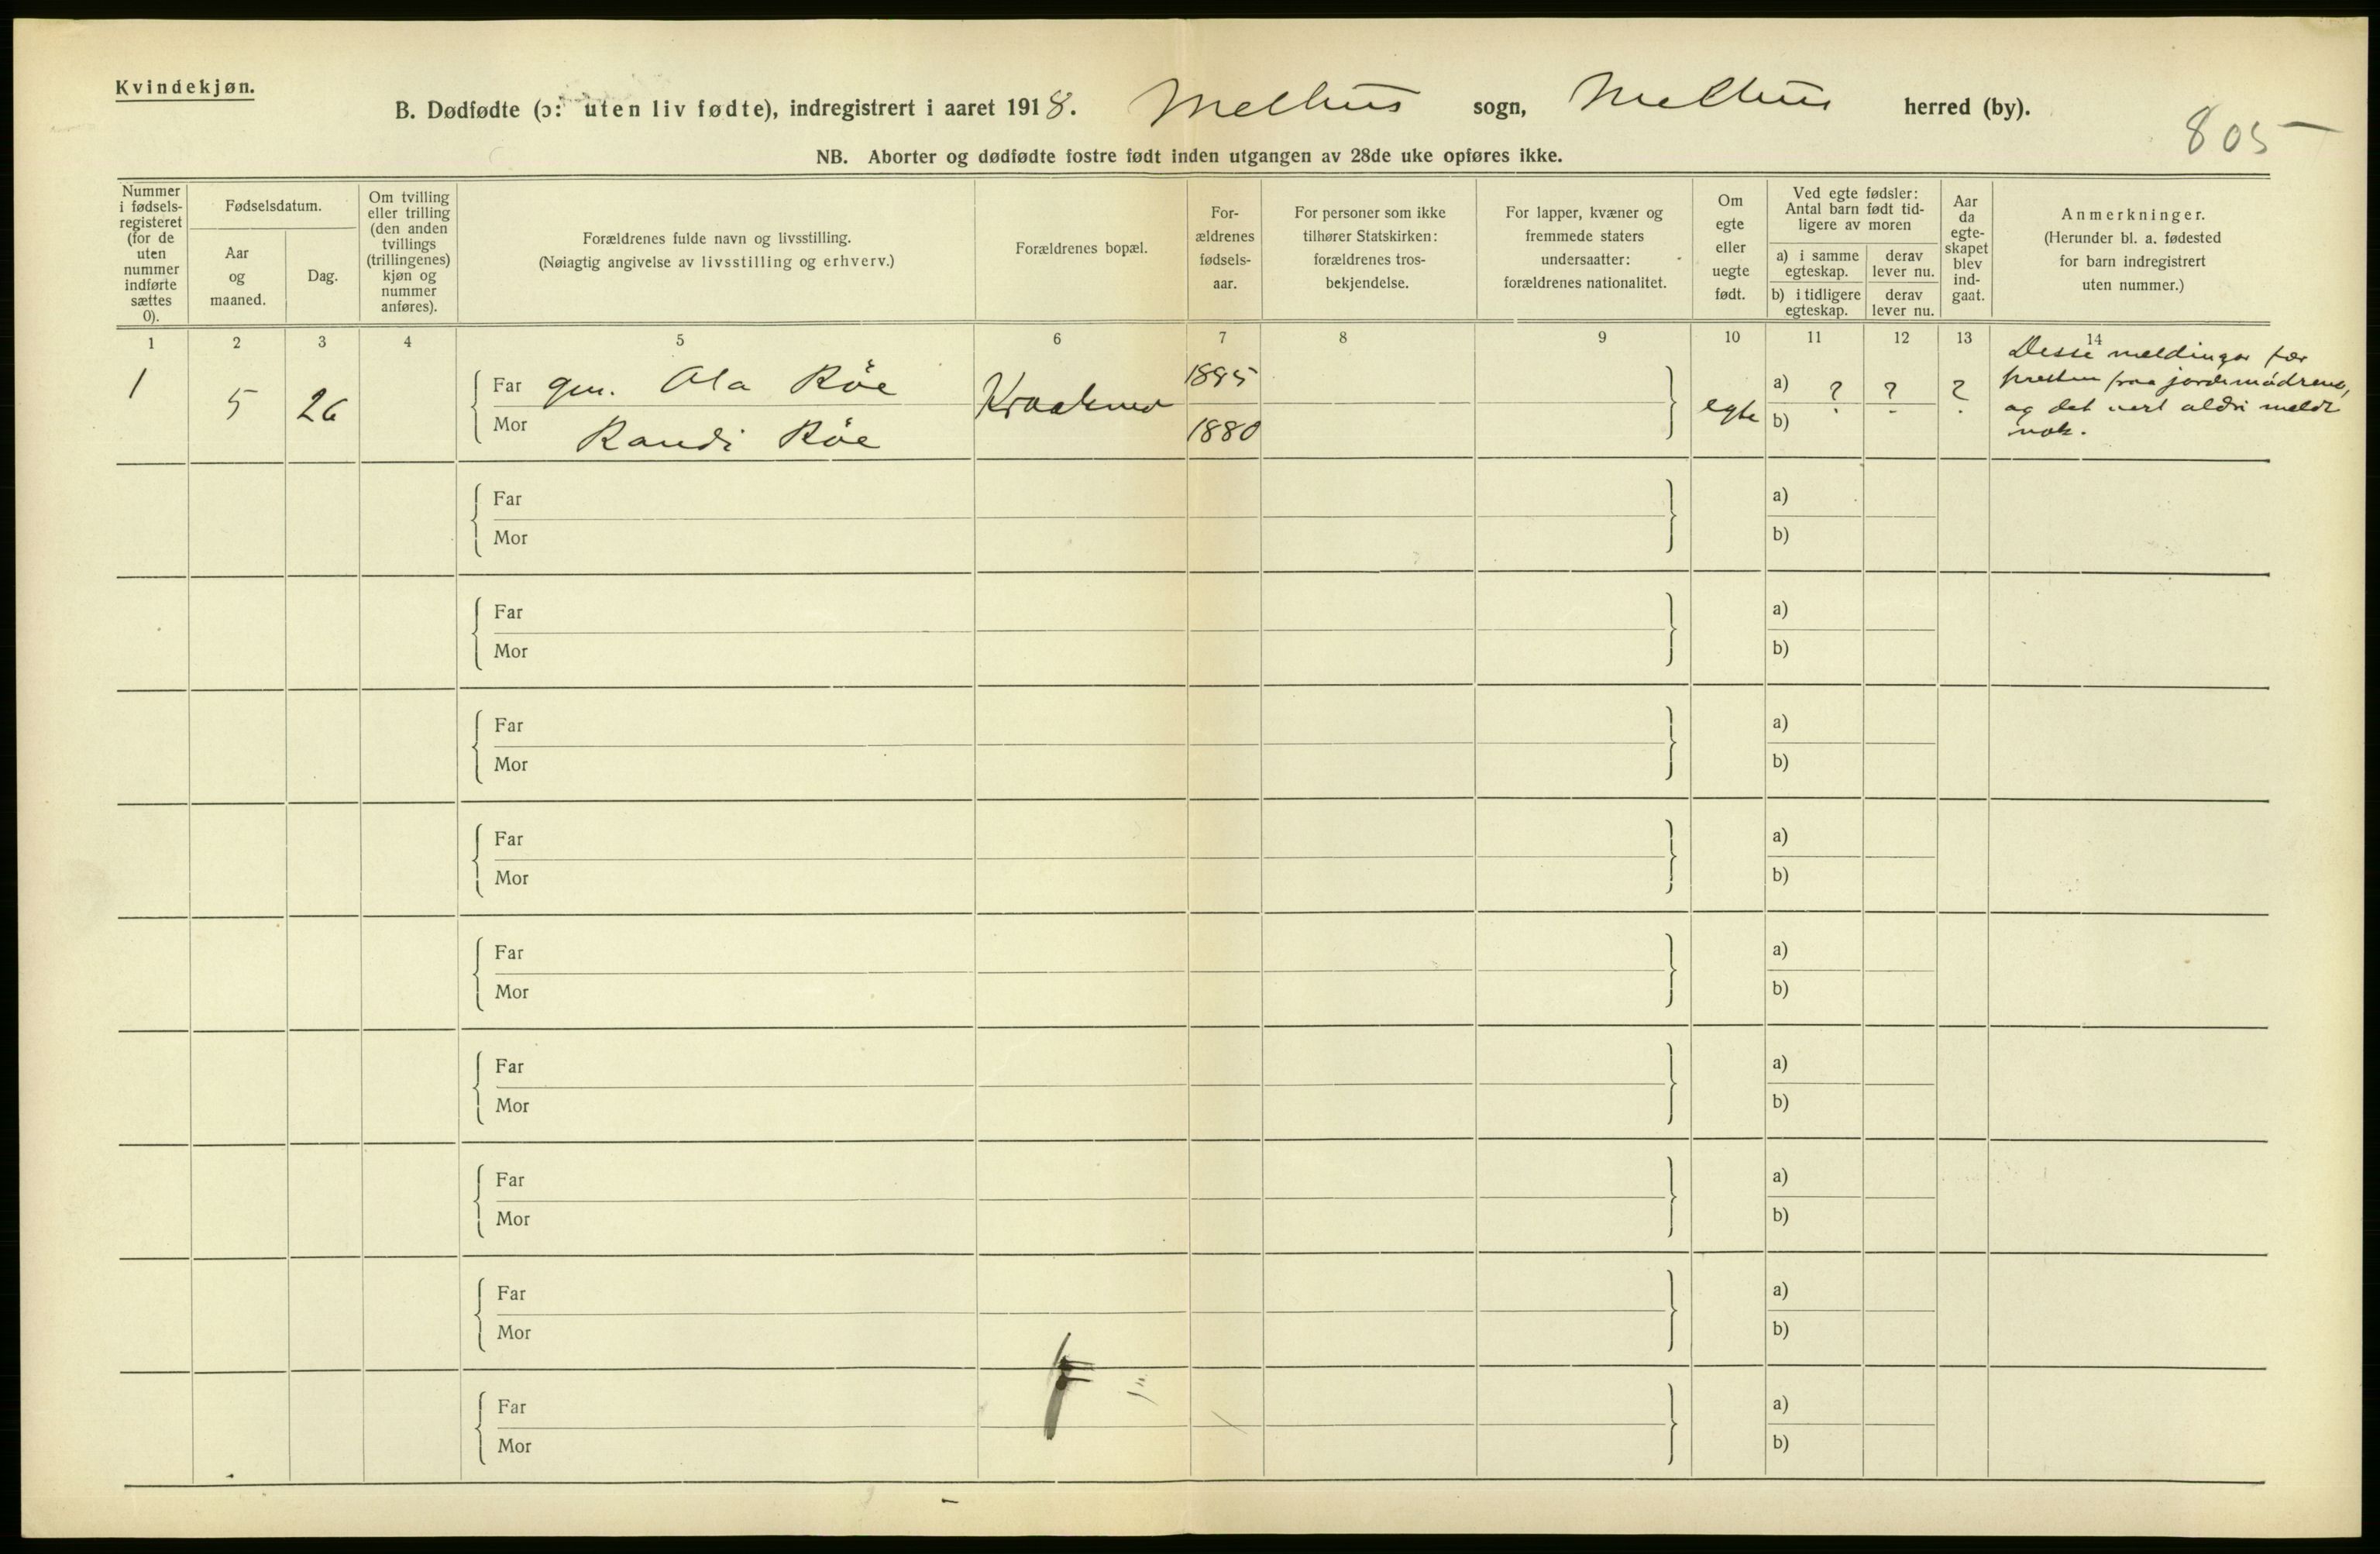 Kvindekjøn.
B. Dødfødte (ɔ: uten liv fødte), indregistrert i aaret 1918. Melhus sogn, Melhus herred (by).
805
NB. Aborter og dødfødte fostre født inden utgangen av 28de uke opføres ikke.
Nummer i fødsels-registeret (for de uten nummer indførte sættes 0).
Fødselsdatum.
Aar og maaned.
Dag.
Om tvilling eller trilling (den anden tvillings (trillingenes) kjøn og nummer anføres).
Forældrenes fulde navn og livsstilling.
(Nøiagtig angivelse av livsstilling og erhverv.)
Forældrenes bopæl.
For-ældrenes fødsels-aar.
For personer som ikke tilhører Statskirken: forældrenes tros-bekjendelse.
For lapper, kvæner og fremmede staters undersaatter: forældrenes nationalitet.
Om egte eller uegte født.
Ved egte fødsler: Antal barn født tid-ligere av moren
a) i samme egteskap.
derav lever nu.
b) i tidligere egteskap.
derav lever nu.
Aar da egte-skapet blev ind-gaat.
Anmerkninger.
(Herunder bl. a. fødested for barn indregistrert uten nummer.)
1 2 3 4 5 6 7 8 9 10 11 12 13 14
1 5 26
Far gm. Ola Röe
Mor Randi Röe
1895
1880
egte
a) ? ? ?
b)
Desse meldingar fær
presten fraa jordmødrene,
og det vert aldri meldt
nok.
Far a)
Mor b)
Far a)
Mor b)
Far a)
Mor b)
Far a)
Mor b)
Far a)
Mor b)
Far a)
Mor b)
Far a)
Mor b)
Far a)
Mor b)
Far a)
Mor b)